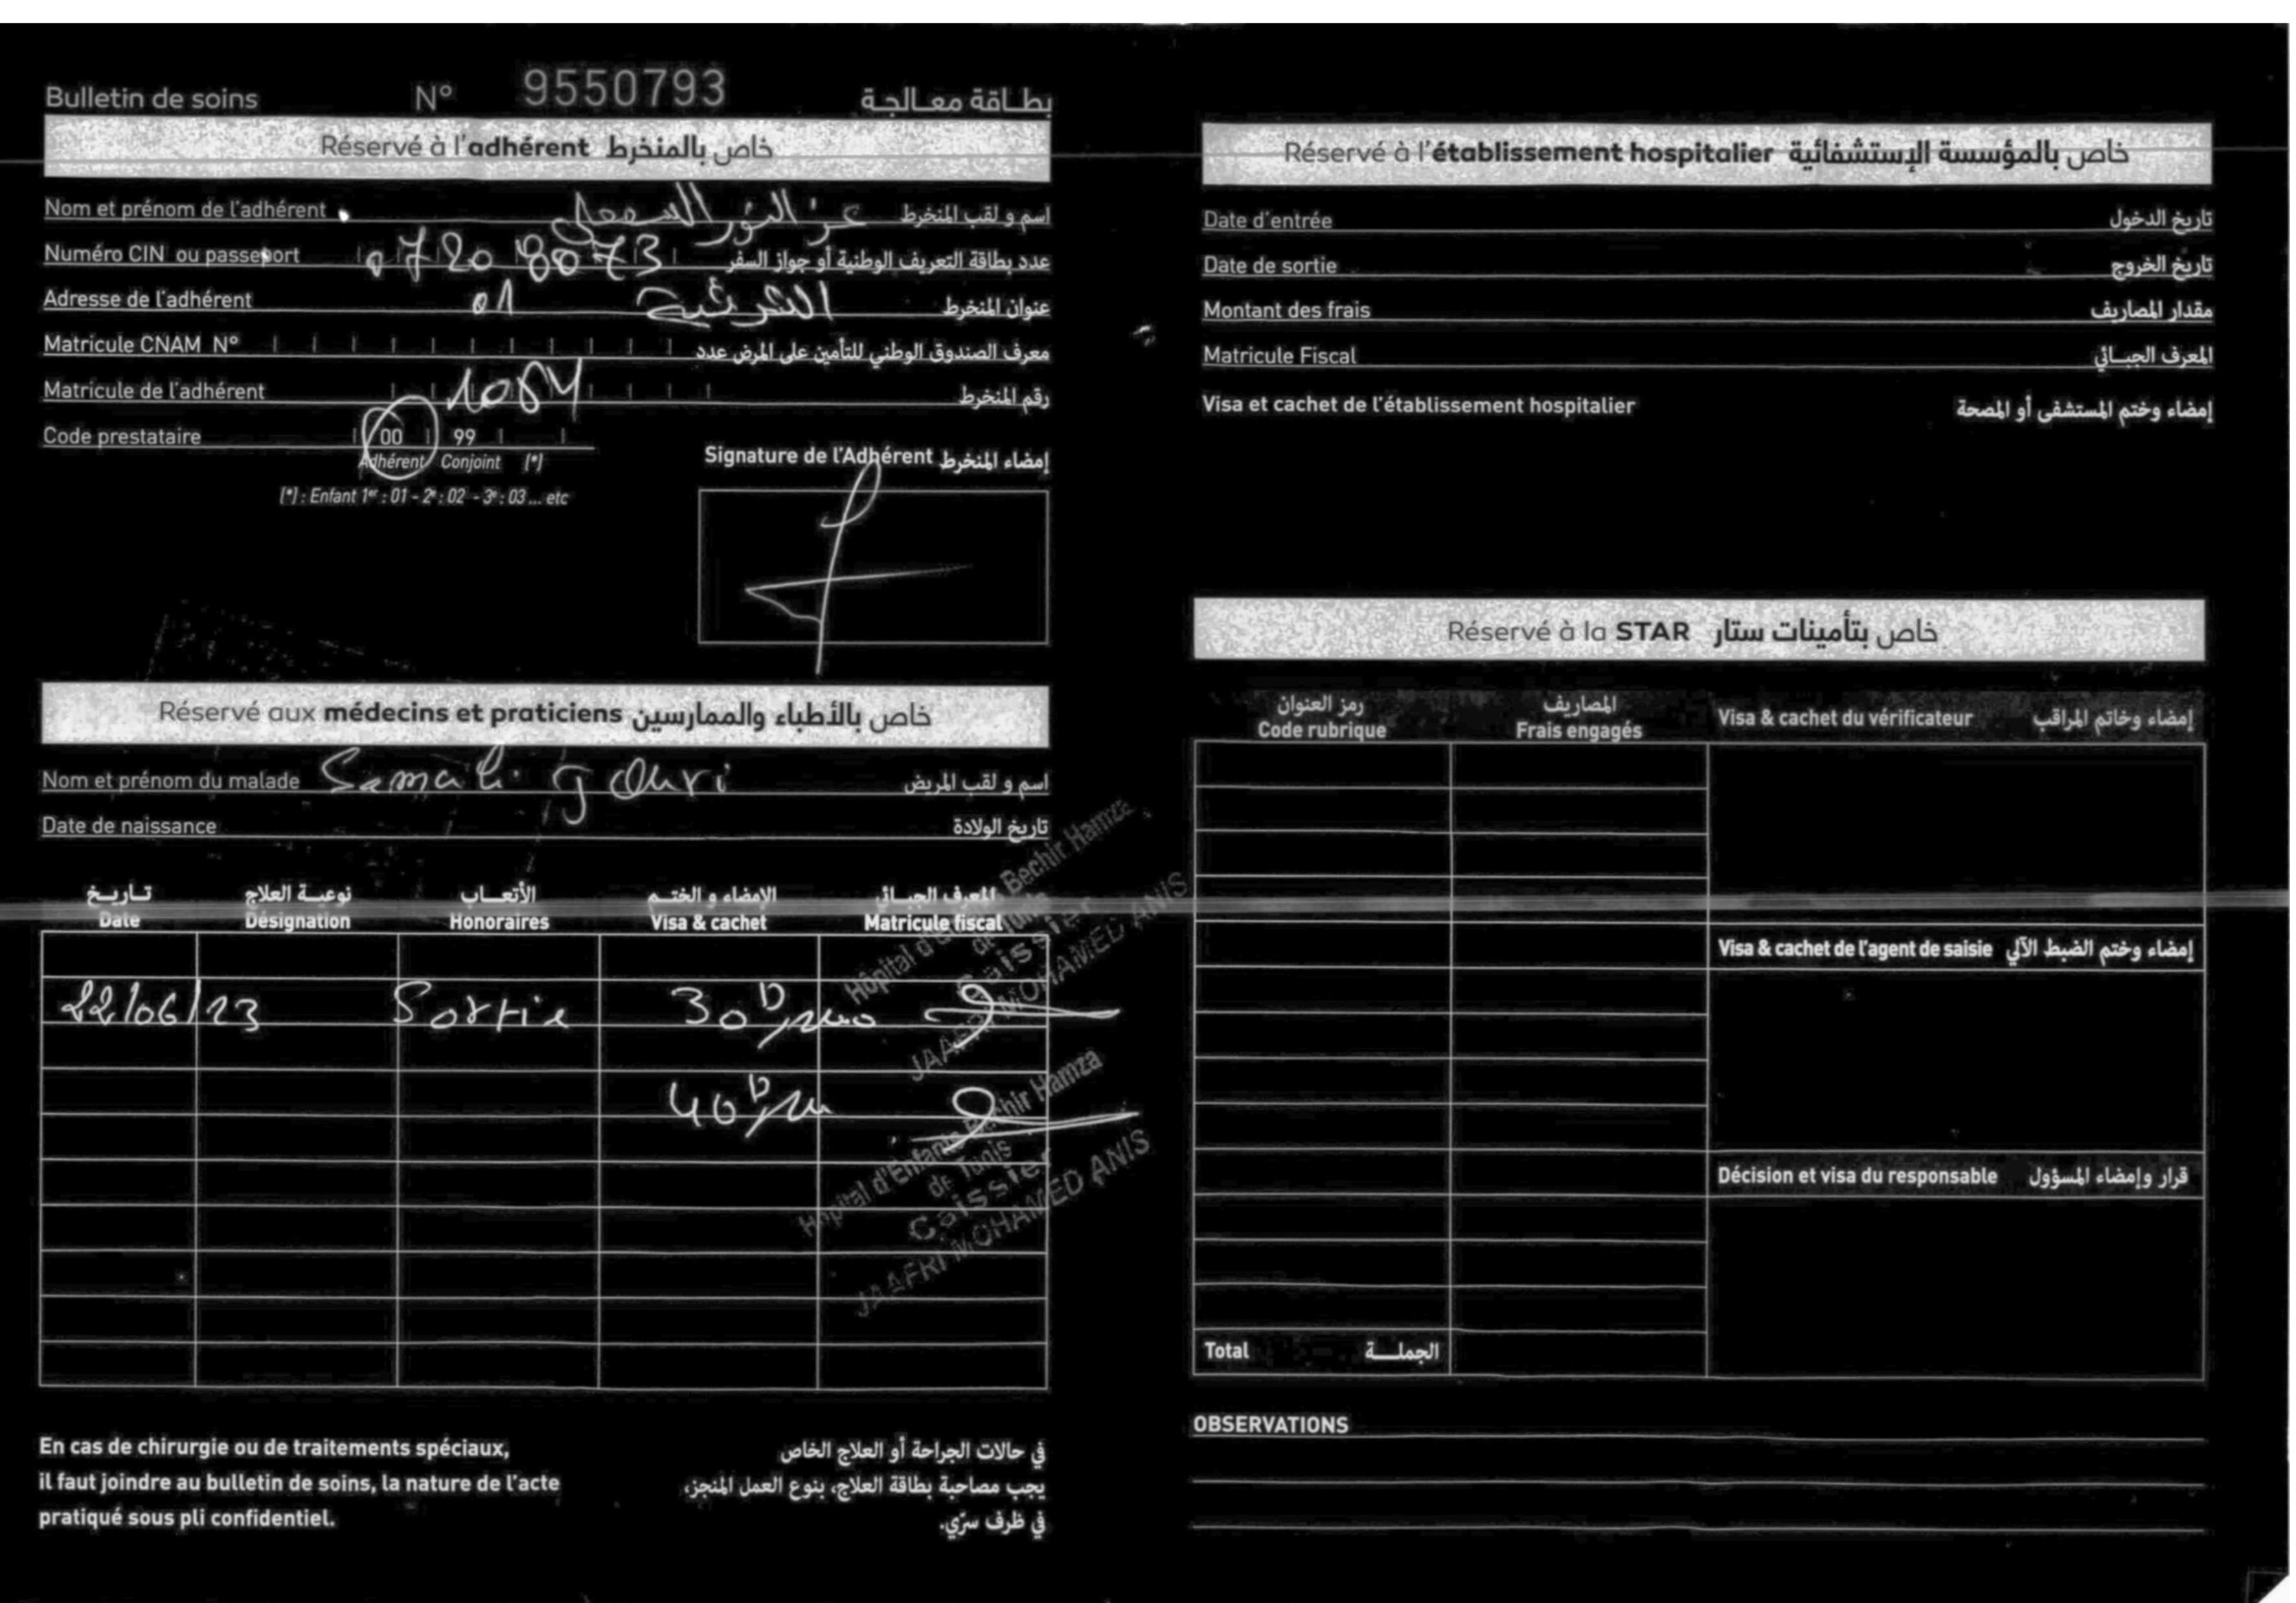 Bulletin de soins N° 9550793 بطاقة معالجة
Réservé à l'adhérent خاص بالمنخرط
Nom et prénom de l'adhérent عز الدين السمعلي اسم و لقب المنخرط
Numéro CIN ou passeport 07208073 عدد بطاقة التعريف الوطنية أو جواز السفر
Adresse de l'adhérent 01 الشرقية عنوان المنخرط
Matricule CNAM N° معرف الصندوق الوطني للتأمين على المرض عدد
Matricule de l'adhérent 1084 رقم المنخرط
Code prestataire 00 99
Adhérent Conjoint (*)
(*) : Enfant 1er : 01 - 2e : 02 - 3e : 03 ... etc
Signature de l'Adhérent إمضاء المنخرط
Réservé aux médecins et praticiens خاص بالأطباء والممارسين
Nom et prénom du malade اسم و لقب المريض
Date de naissance تاريخ الولادة
تاريخ نوعية العلاج الأتعاب الإمضاء و الختم المعرف الجبائي
Date Désignation Honoraires Visa & cachet Matricule fiscal
22/06/23 Sortie 30D
40D
Hôpital d'Enfants Bechir Hamza
de Tunis
Caissier
JAAFRI MOHAMED ANIS
Hôpital d'Enfants Bechir Hamza
de Tunis
Caissier
JAAFRI MOHAMED ANIS
En cas de chirurgie ou de traitements spéciaux,
il faut joindre au bulletin de soins, la nature de l'acte
pratiqué sous pli confidentiel.
في حالات الجراحة أو العلاج الخاص
يجب مصاحبة بطاقة العلاج، بنوع العمل المنجز،
في ظرف سرّي.
Réservé à l'établissement hospitalier خاص بالمؤسسة الإستشفائية
Date d'entrée تاريخ الدخول
Date de sortie تاريخ الخروج
Montant des frais مقدار المصاريف
Matricule Fiscal المعرف الجبائي
Visa et cachet de l'établissement hospitalier إمضاء وختم المستشفى أو المصحة
Réservé à la STAR خاص بتأمينات ستار
رمز العنوان المصاريف
Code rubrique Frais engagés Visa & cachet du vérificateur إمضاء وخاتم المراقب
Visa & cachet de l'agent de saisie إمضاء وختم الضبط الآلي
Décision et visa du responsable قرار وإمضاء المسؤول
Total الجملة
OBSERVATIONS